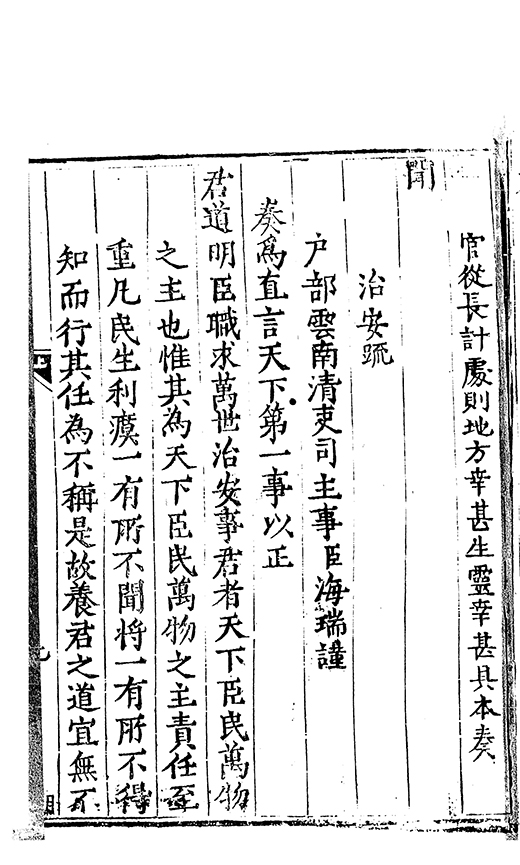 官從長計處則地方幸甚生靈幸甚具本奏
聞
治安疏
户部雲南清吏司主事臣海瑞謹
奏爲直言天下第一事以正
君道明臣職求萬世治安事君者天下臣民萬物
之主也惟其為天下臣民萬物之主責任至
重凡民生利瘼一有所不聞将一有所不得
知而行其任為不稱是故養君之道宜無不